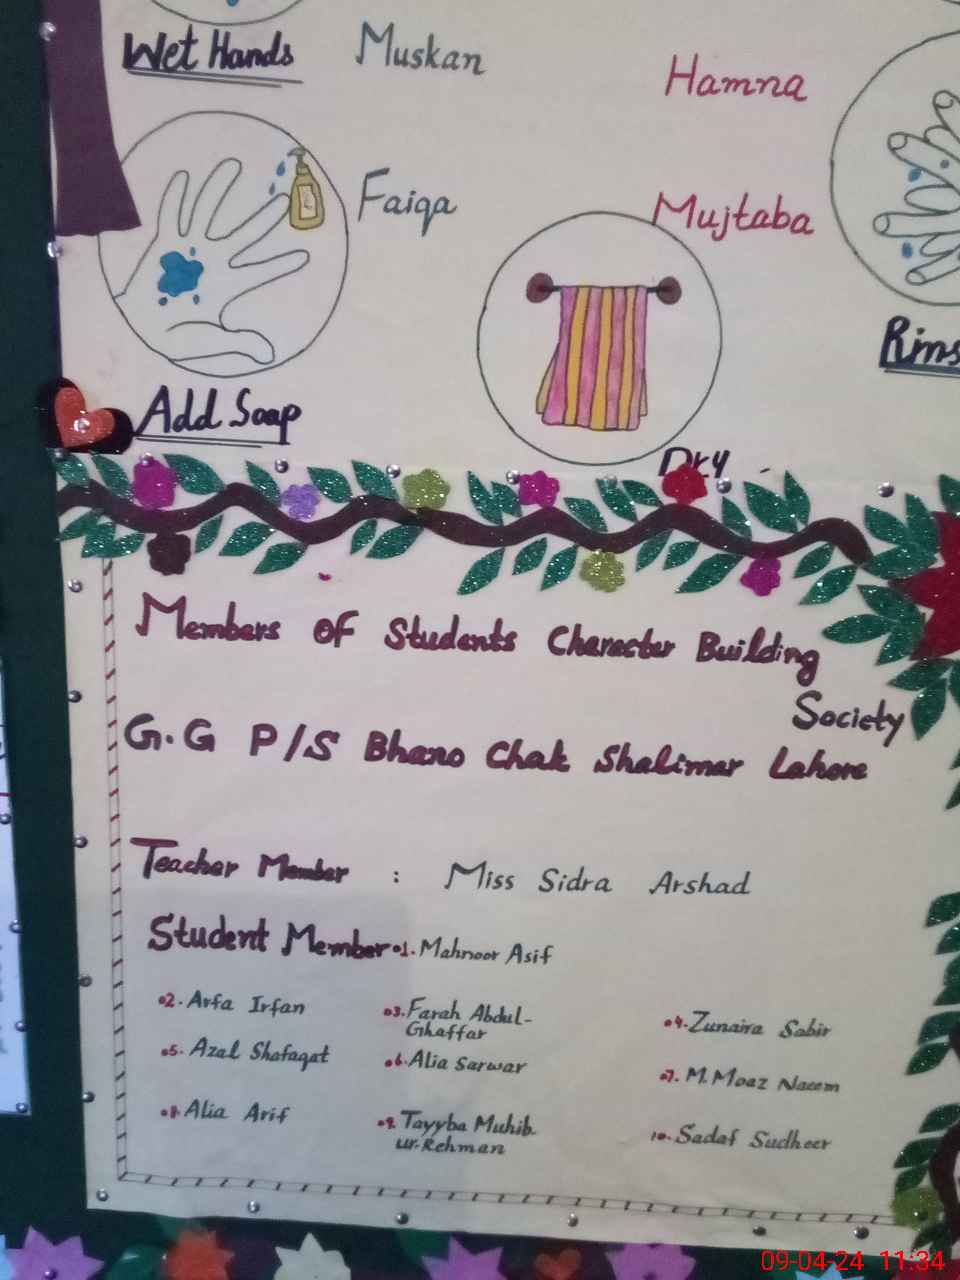 Wet Hands
Muskan
Hamna
Faiqa
Mujtaba
Add Soap
Dry
Members Of Students Character Building
Society
G.G P/S Bhano Chak Shalimar Lahore
Teacher Member : Miss Sidra Arshad
Student Member 01. Mahnoor Asif
02. Arfa Irfan
03. Farah Abdul-
Ghaffar
04. Zunaira Sabir
05. Azal Shafaqat
06. Alia Sarwar
07. M. Moaz Naeem
08. Alia Arif
09. Tayyba Muhib-
ur-Rehman
10. Sadaf Sudheer
09-04-24 11:34